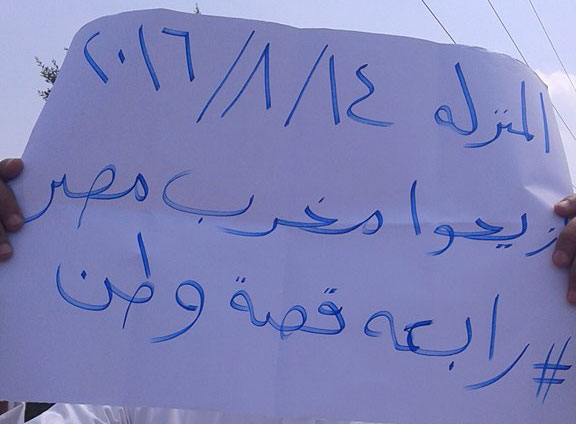 المنزله ٢٠١٦/٨/١٤
ازيحوا مخرب مصر
#رابعه قصة وطن